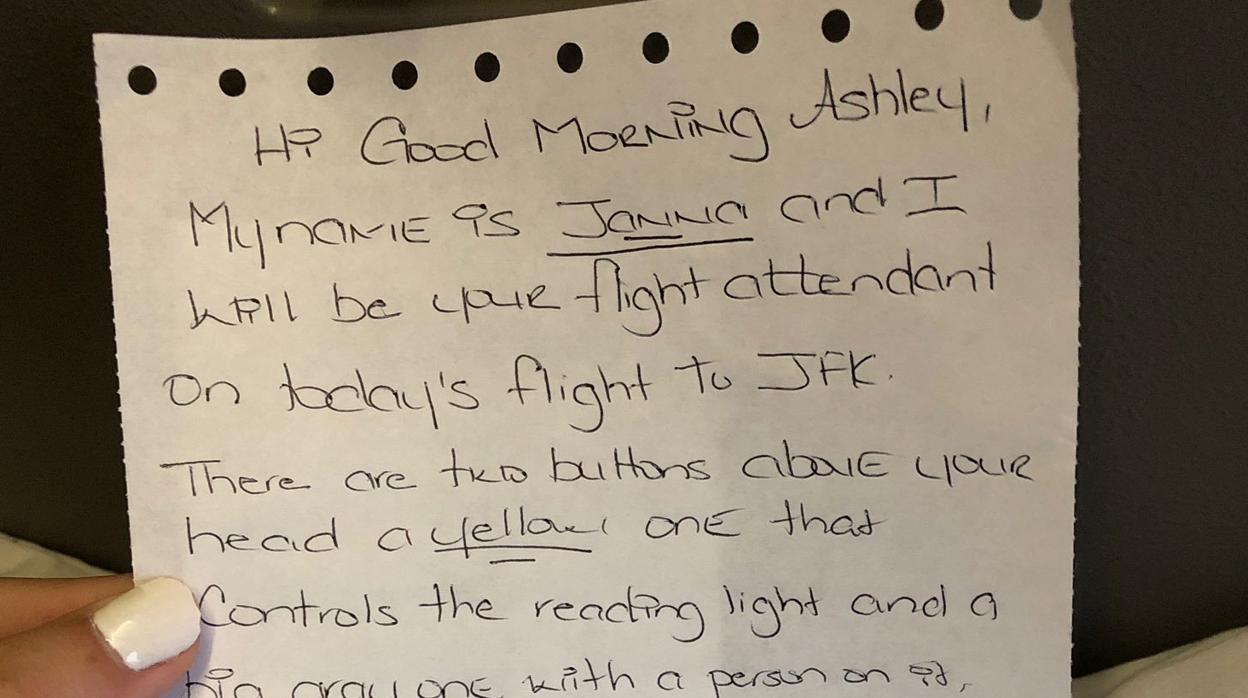 Hi Good Morning Ashley,
My name is Janna and I
will be your flight attendant
on today's flight to JFK.
There are two buttons above your
head a yellow one that
Controls the reading light and a
big gray one with a person on it,